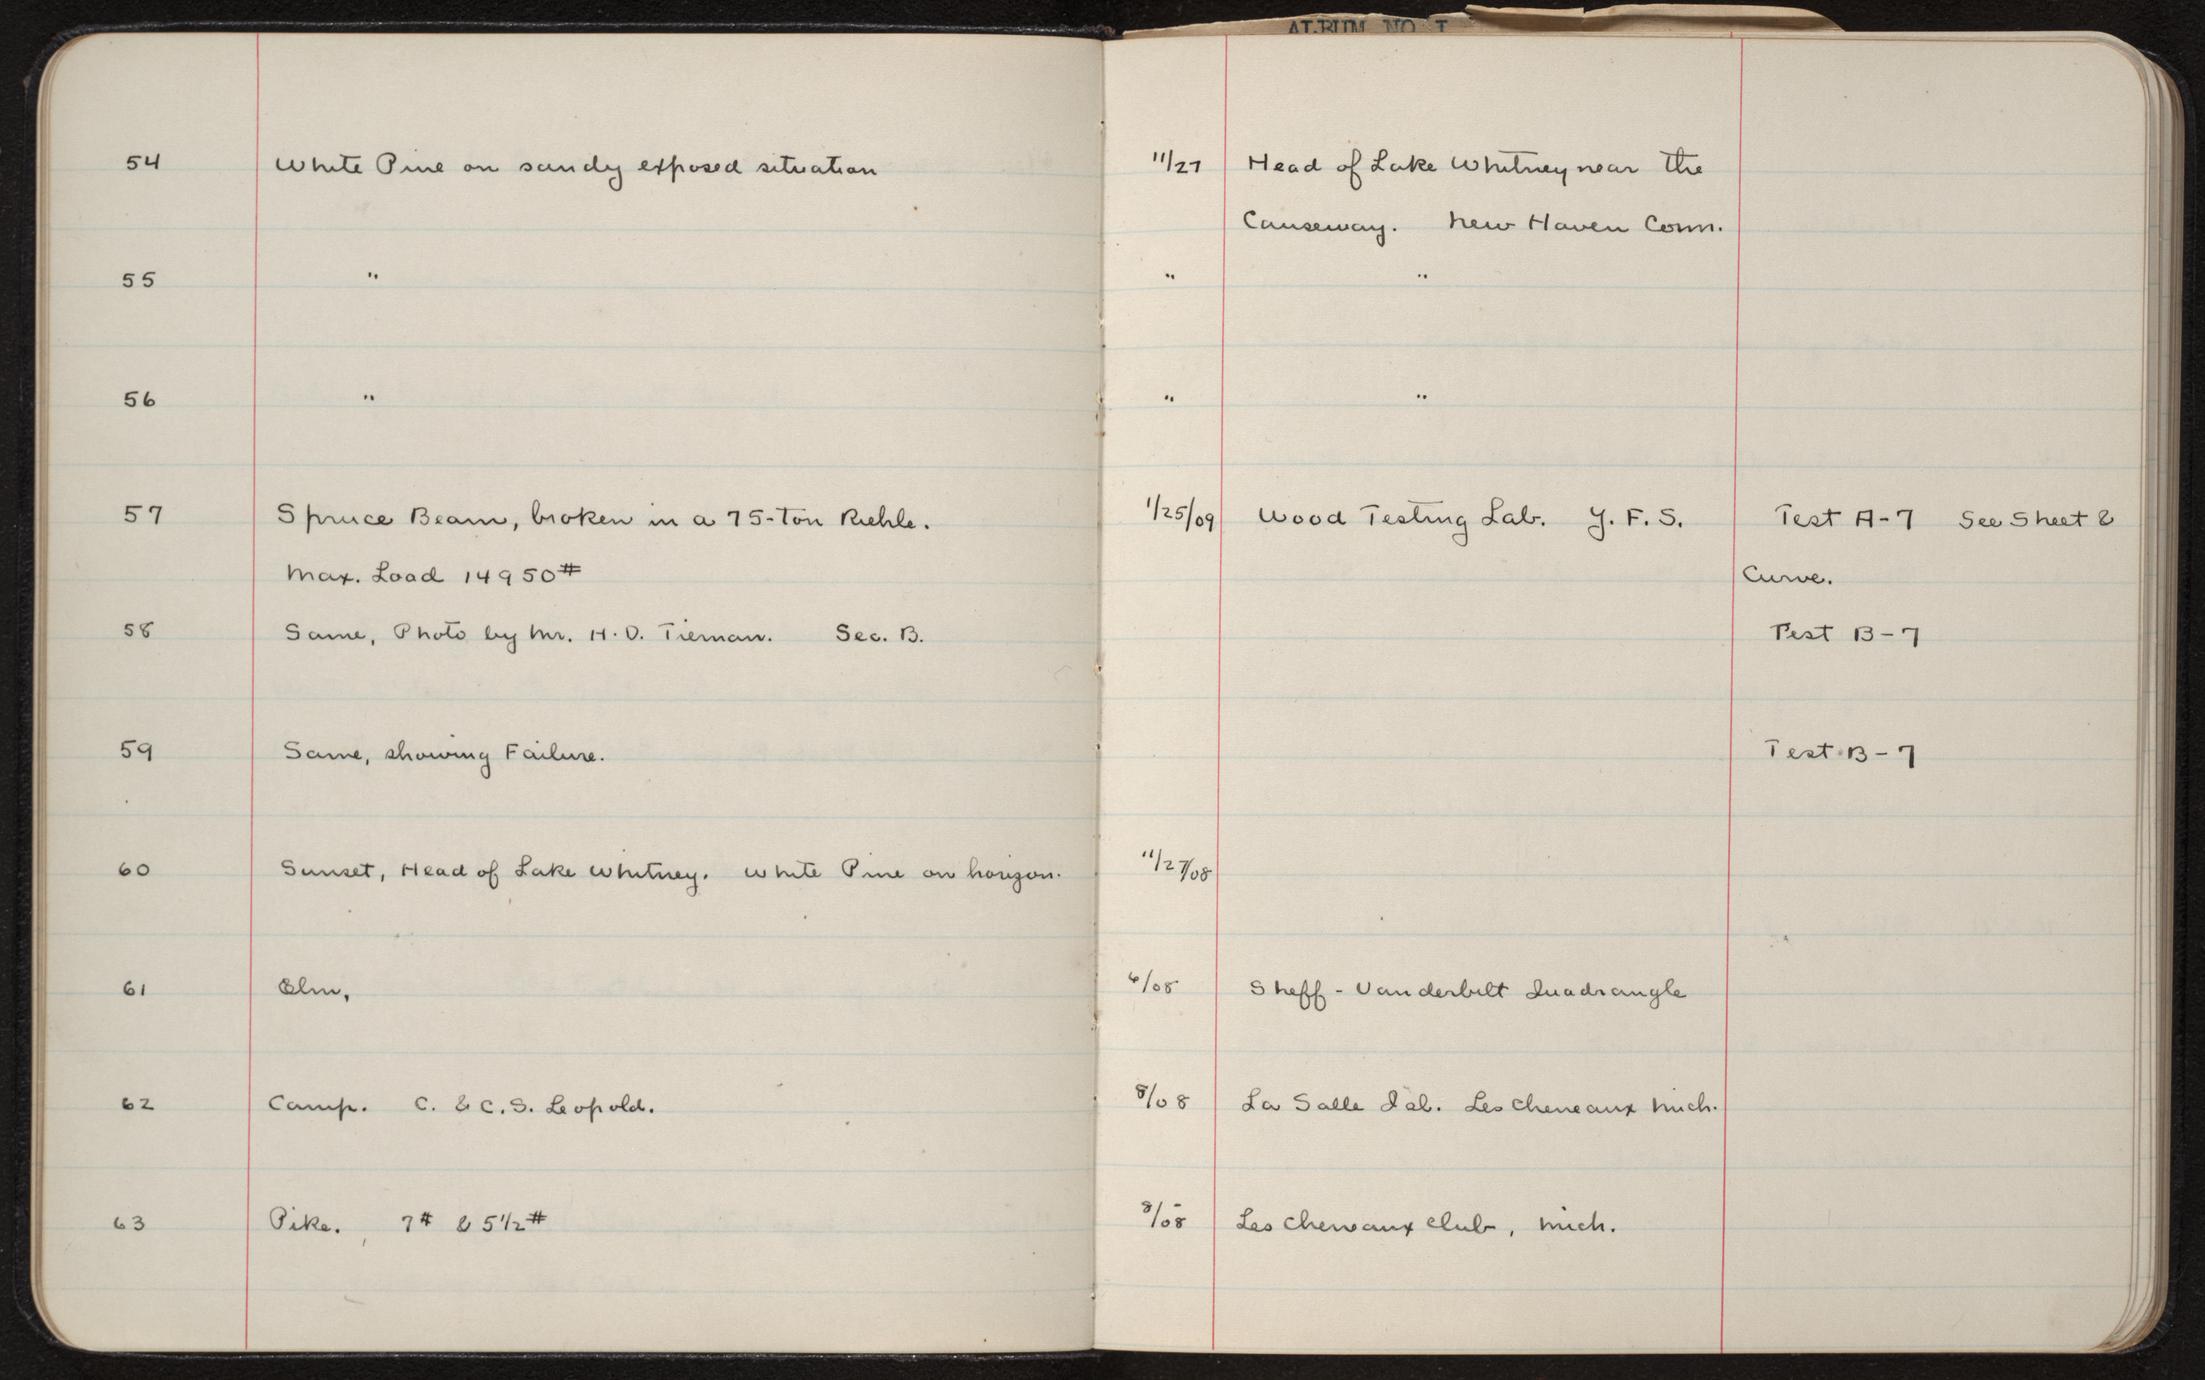 ALBUM NO I
54 White Pine on sandy exposed situation 11/27 Head of Lake Whitney near the
Causeway. New Haven Conn.
55 " " "
56 " " "
57 Spruce Beam, broken in a 75-Ton Riehle. 1/25/09 Wood Testing Lab. Y. F. S. Test A-7 See Sheet &
Max. Load 14950# Curve.
58 Same, Photo by Mr. H. D. Tieman. Sec. B. Test B-7
59 Same, showing Failure. Test B-7
60 Sunset, Head of Lake Whitney. White Pine on horizon. 11/27/08
61 Elm, 6/08 Sheff - Vanderbilt Quadrangle
62 Camp. C. & C. S. Leopold. 8/08 La Salle Isl. Les Cheneaux Mich.
63 Pike. 7# & 5 1/2# 8/08 Les Cheneaux Club, Mich.